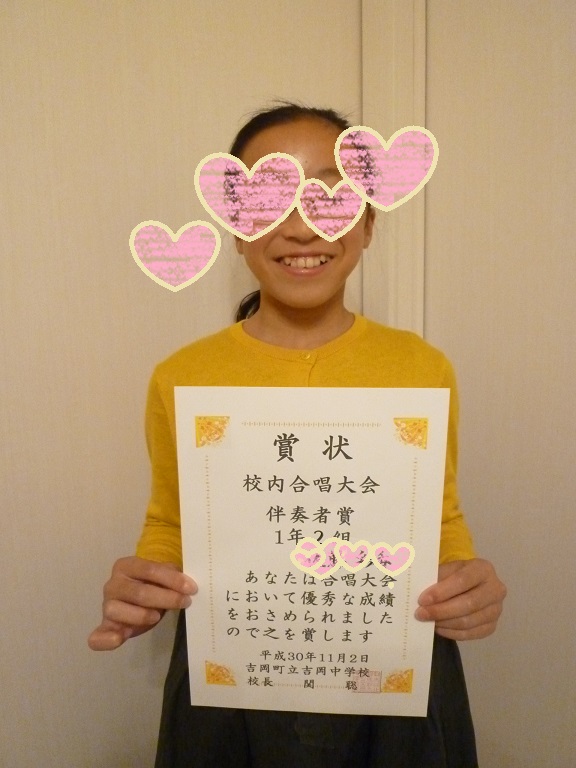 賞状
校内合唱大会
伴奏者賞
1年2組
あなたは合唱大会
において優秀な成績
をおさめられました
ので之を賞します
平成30年11月2日
吉岡町立吉岡中学校
校長 関 聡